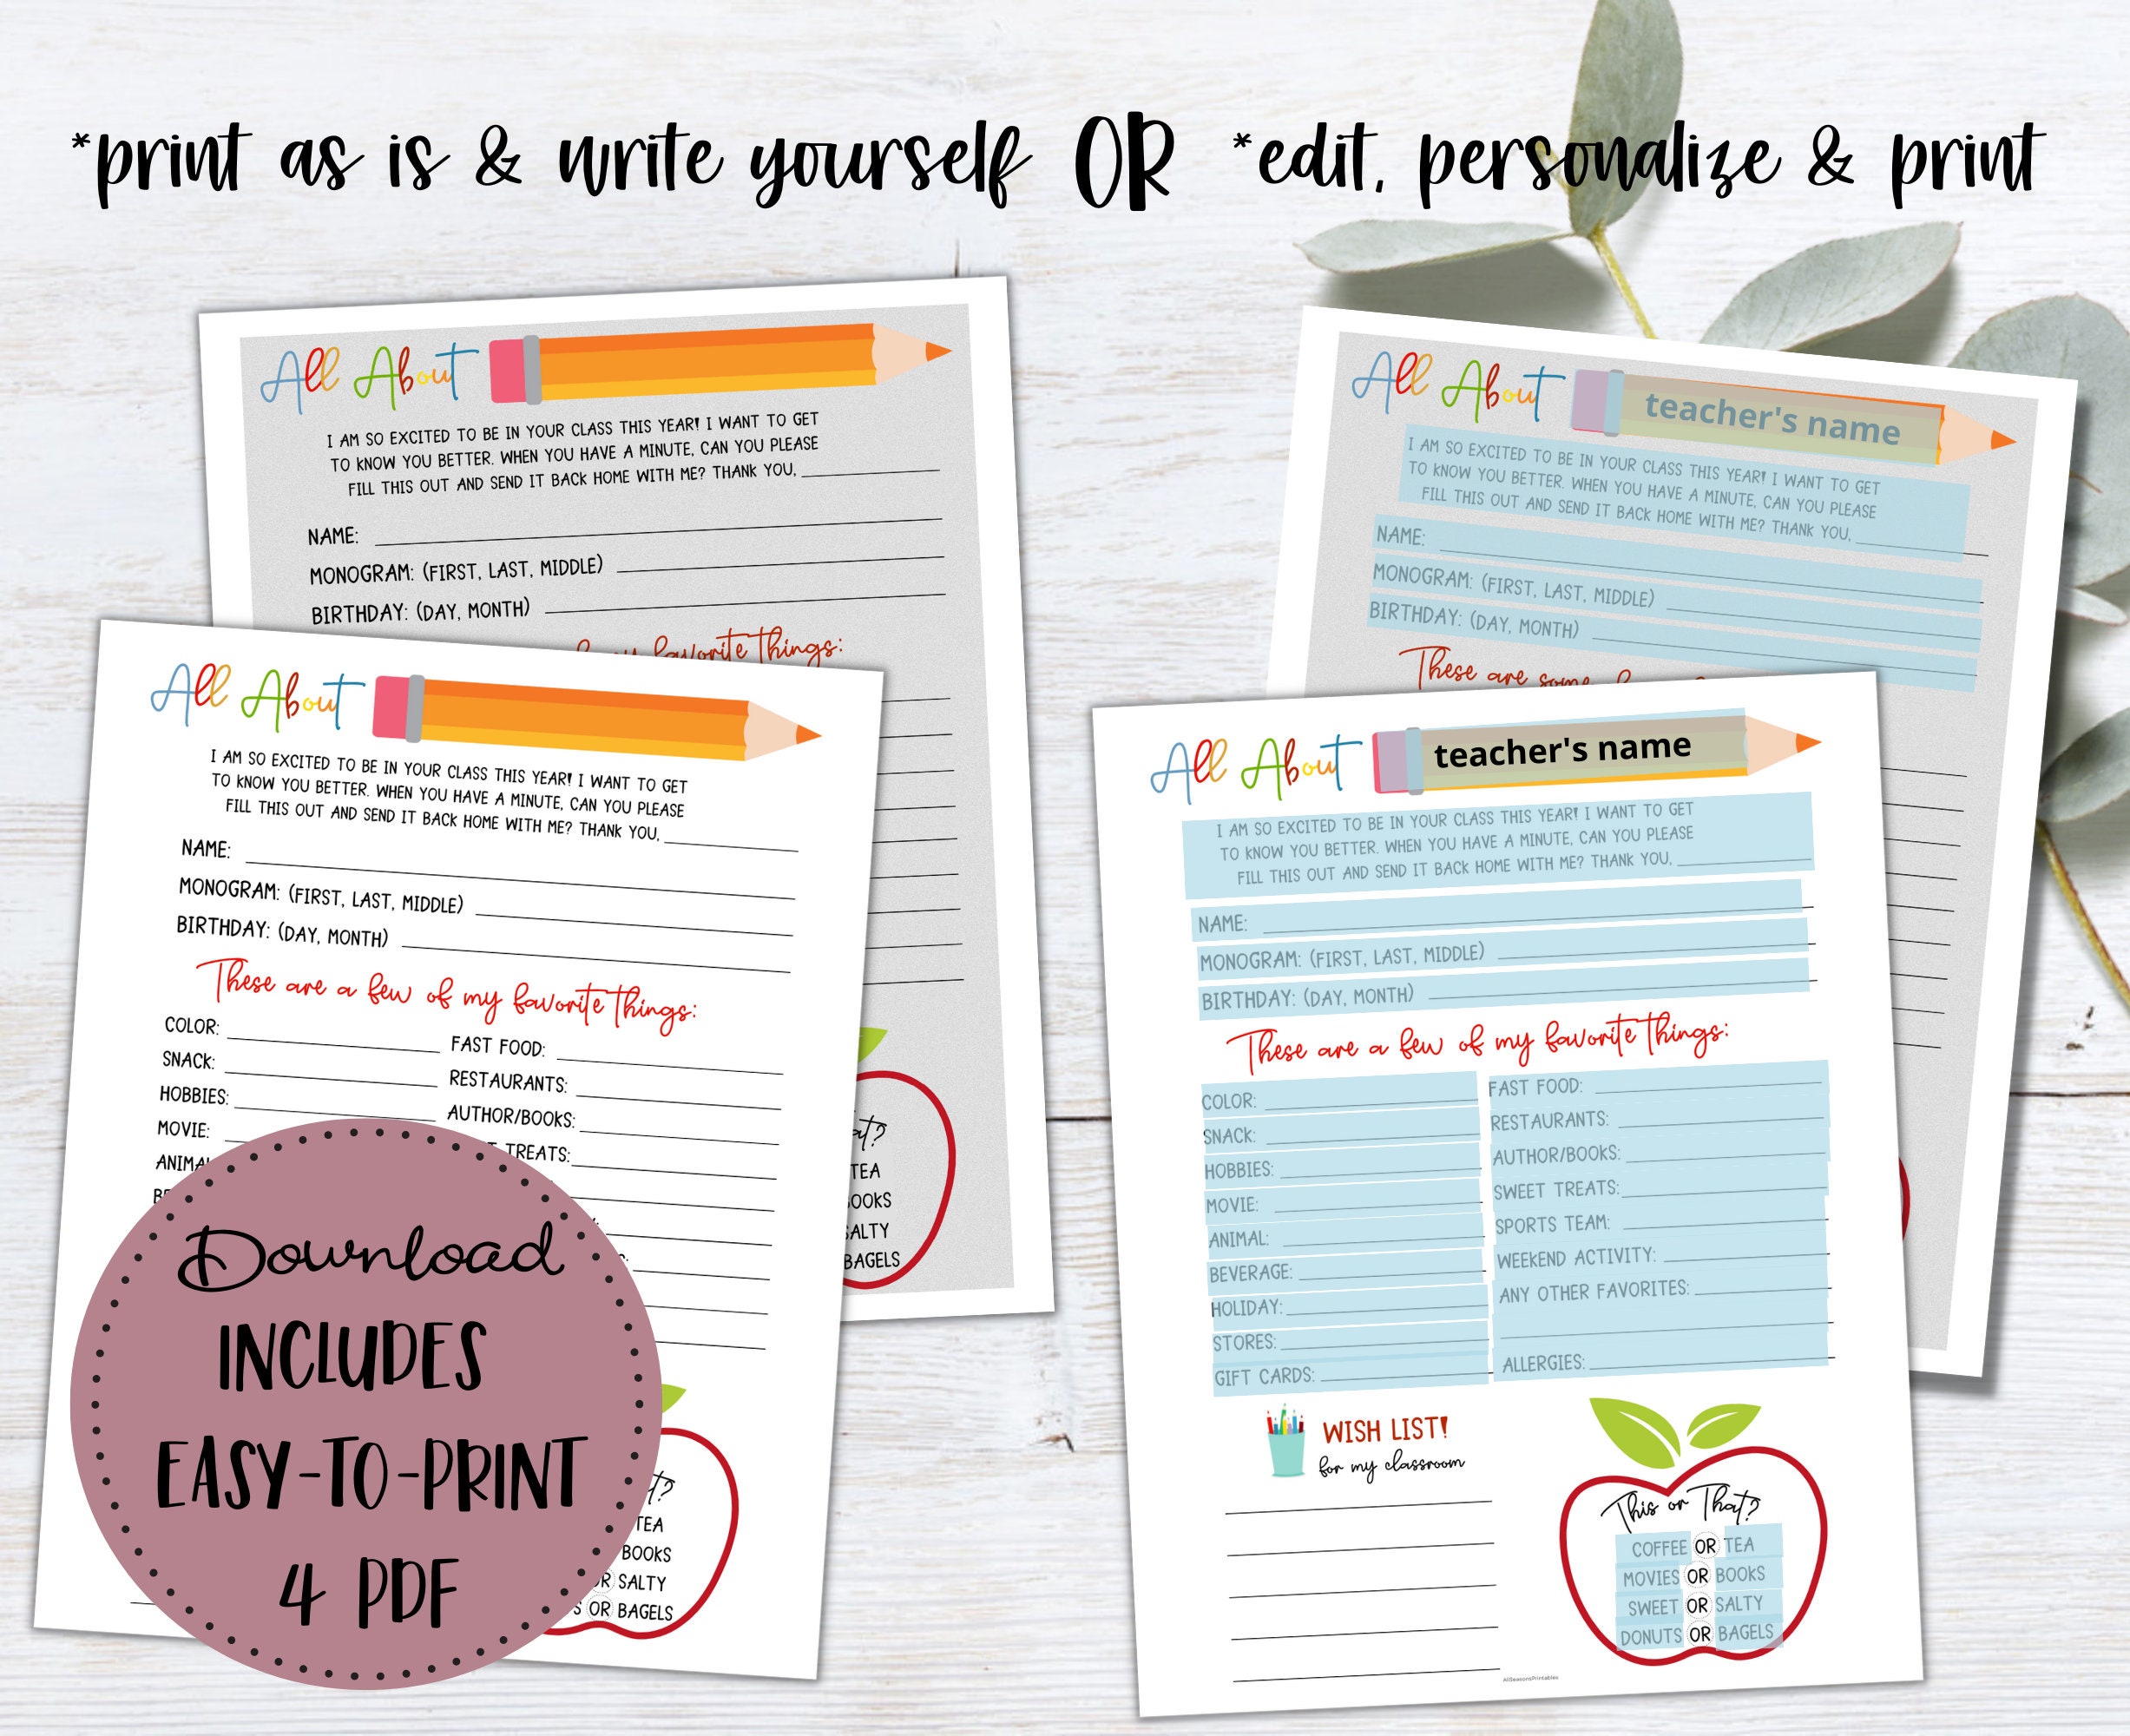 *print as is & write yourself OR *edit, personalize & print
All About
I AM SO EXCITED TO BE IN YOUR CLASS THIS YEAR! I WANT TO GET
TO KNOW YOU BETTER. WHEN YOU HAVE A MINUTE, CAN YOU PLEASE
FILL THIS OUT AND SEND IT BACK HOME WITH ME? THANK YOU,
NAME:
MONOGRAM: (FIRST, LAST, MIDDLE)
BIRTHDAY: (DAY, MONTH)
my favorite things:
at?
TEA
BOOKS
SALTY
BAGELS
All About teacher's name
I AM SO EXCITED TO BE IN YOUR CLASS THIS YEAR! I WANT TO GET
TO KNOW YOU BETTER. WHEN YOU HAVE A MINUTE, CAN YOU PLEASE
FILL THIS OUT AND SEND IT BACK HOME WITH ME? THANK YOU,
NAME:
MONOGRAM: (FIRST, LAST, MIDDLE)
BIRTHDAY: (DAY, MONTH)
These are some
All About
I AM SO EXCITED TO BE IN YOUR CLASS THIS YEAR! I WANT TO GET
TO KNOW YOU BETTER. WHEN YOU HAVE A MINUTE, CAN YOU PLEASE
FILL THIS OUT AND SEND IT BACK HOME WITH ME? THANK YOU,
NAME:
MONOGRAM: (FIRST, LAST, MIDDLE)
BIRTHDAY: (DAY, MONTH)
These are a few of my favorite things:
COLOR: FAST FOOD:
SNACK: RESTAURANTS:
HOBBIES: AUTHOR/BOOKS:
MOVIE: TREATS:
ANIMA
TEA
BOOKS
OR SALTY
S OR BAGELS
Download
INCLUDES
EASY-TO-PRINT
4 PDF
All About teacher's name
I AM SO EXCITED TO BE IN YOUR CLASS THIS YEAR! I WANT TO GET
TO KNOW YOU BETTER. WHEN YOU HAVE A MINUTE, CAN YOU PLEASE
FILL THIS OUT AND SEND IT BACK HOME WITH ME? THANK YOU,
NAME:
MONOGRAM: (FIRST, LAST, MIDDLE)
BIRTHDAY: (DAY, MONTH)
These are a few of my favorite things:
COLOR: FAST FOOD:
SNACK: RESTAURANTS:
HOBBIES: AUTHOR/BOOKS:
MOVIE: SWEET TREATS:
ANIMAL: SPORTS TEAM:
BEVERAGE: WEEKEND ACTIVITY:
HOLIDAY: ANY OTHER FAVORITES:
STORES:
GIFT CARDS: ALLERGIES:
WISH LIST!
for my classroom
This or That?
COFFEE OR TEA
MOVIES OR BOOKS
SWEET OR SALTY
DONUTS OR BAGELS
AllSeasonsPrintables